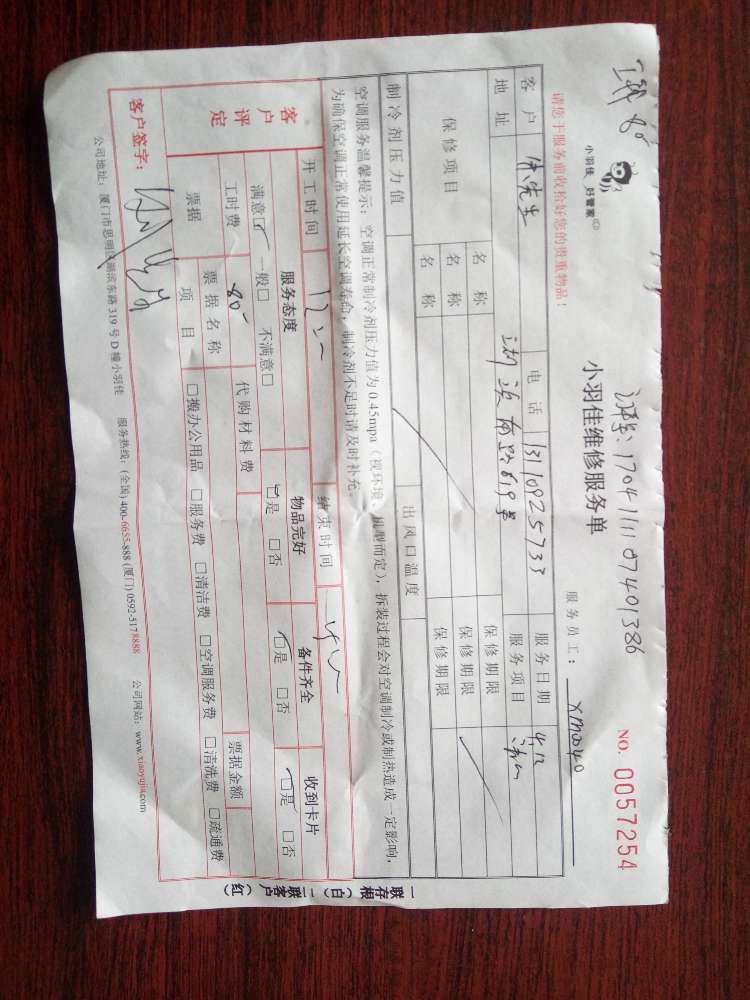 小羽佳 好管家
请您于服务前收拾好您的贵重物品！
小羽佳维修服务单
NO. 0057254
170411107401386
服务员工： XM0040
客户 先生 电话 1310925733 服务日期 4.12
地址 湖滨南路619号 服务项目
保修项目 名称 保修期限
名称 保修期限
名称 保修期限
制冷剂压力值 出风口温度
空调服务温馨提示：空调正常制冷剂压力值为0.45mpa（视环境、机型而定），拆装过程会对空调制冷或制热造成一定影响，
为确保空调正常使用延长空调寿命，制冷剂不足时请及时补充。
开工时间 结束时间
客户评定 服务态度 物品完好 备件齐全 收到卡片
满意☑ 一般□ 不满意□ ☑是 □否 ☑是 □否 ☑是 □否
工时费 80 代购材料费 票据金额
票据 票据名称
项目 □搬办公用品 □服务费 □清洁费 □空调服务费 □清洗费 □疏通费
客户签字：
公司地址：厦门市思明区湖滨东路319号D幢小羽佳 服务热线：(全国)400-6655-888 (厦门)0592-5178888 公司网站：www.xiaoyujia.com
一联存根（白） 二联客户（红）